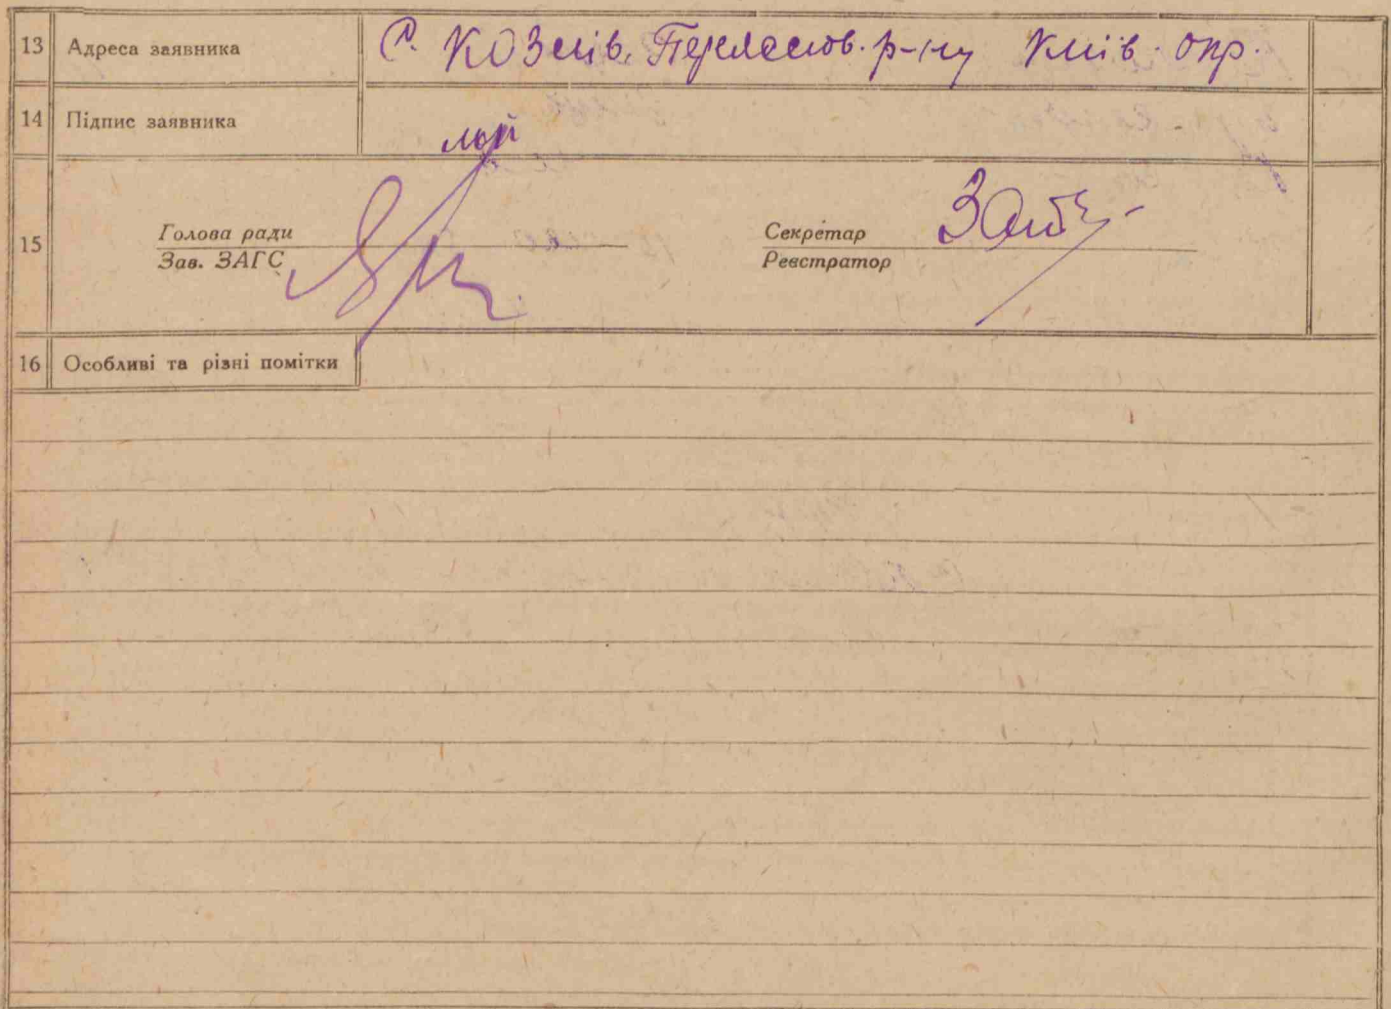 13 Адреса заявника с. Козлів. Переяслов. р-ну Київ. окр.
14 Підпис заявника
15 Голова ради Секретар
Зав. ЗАГС Реєстратор
16 Особливі та різні помітки